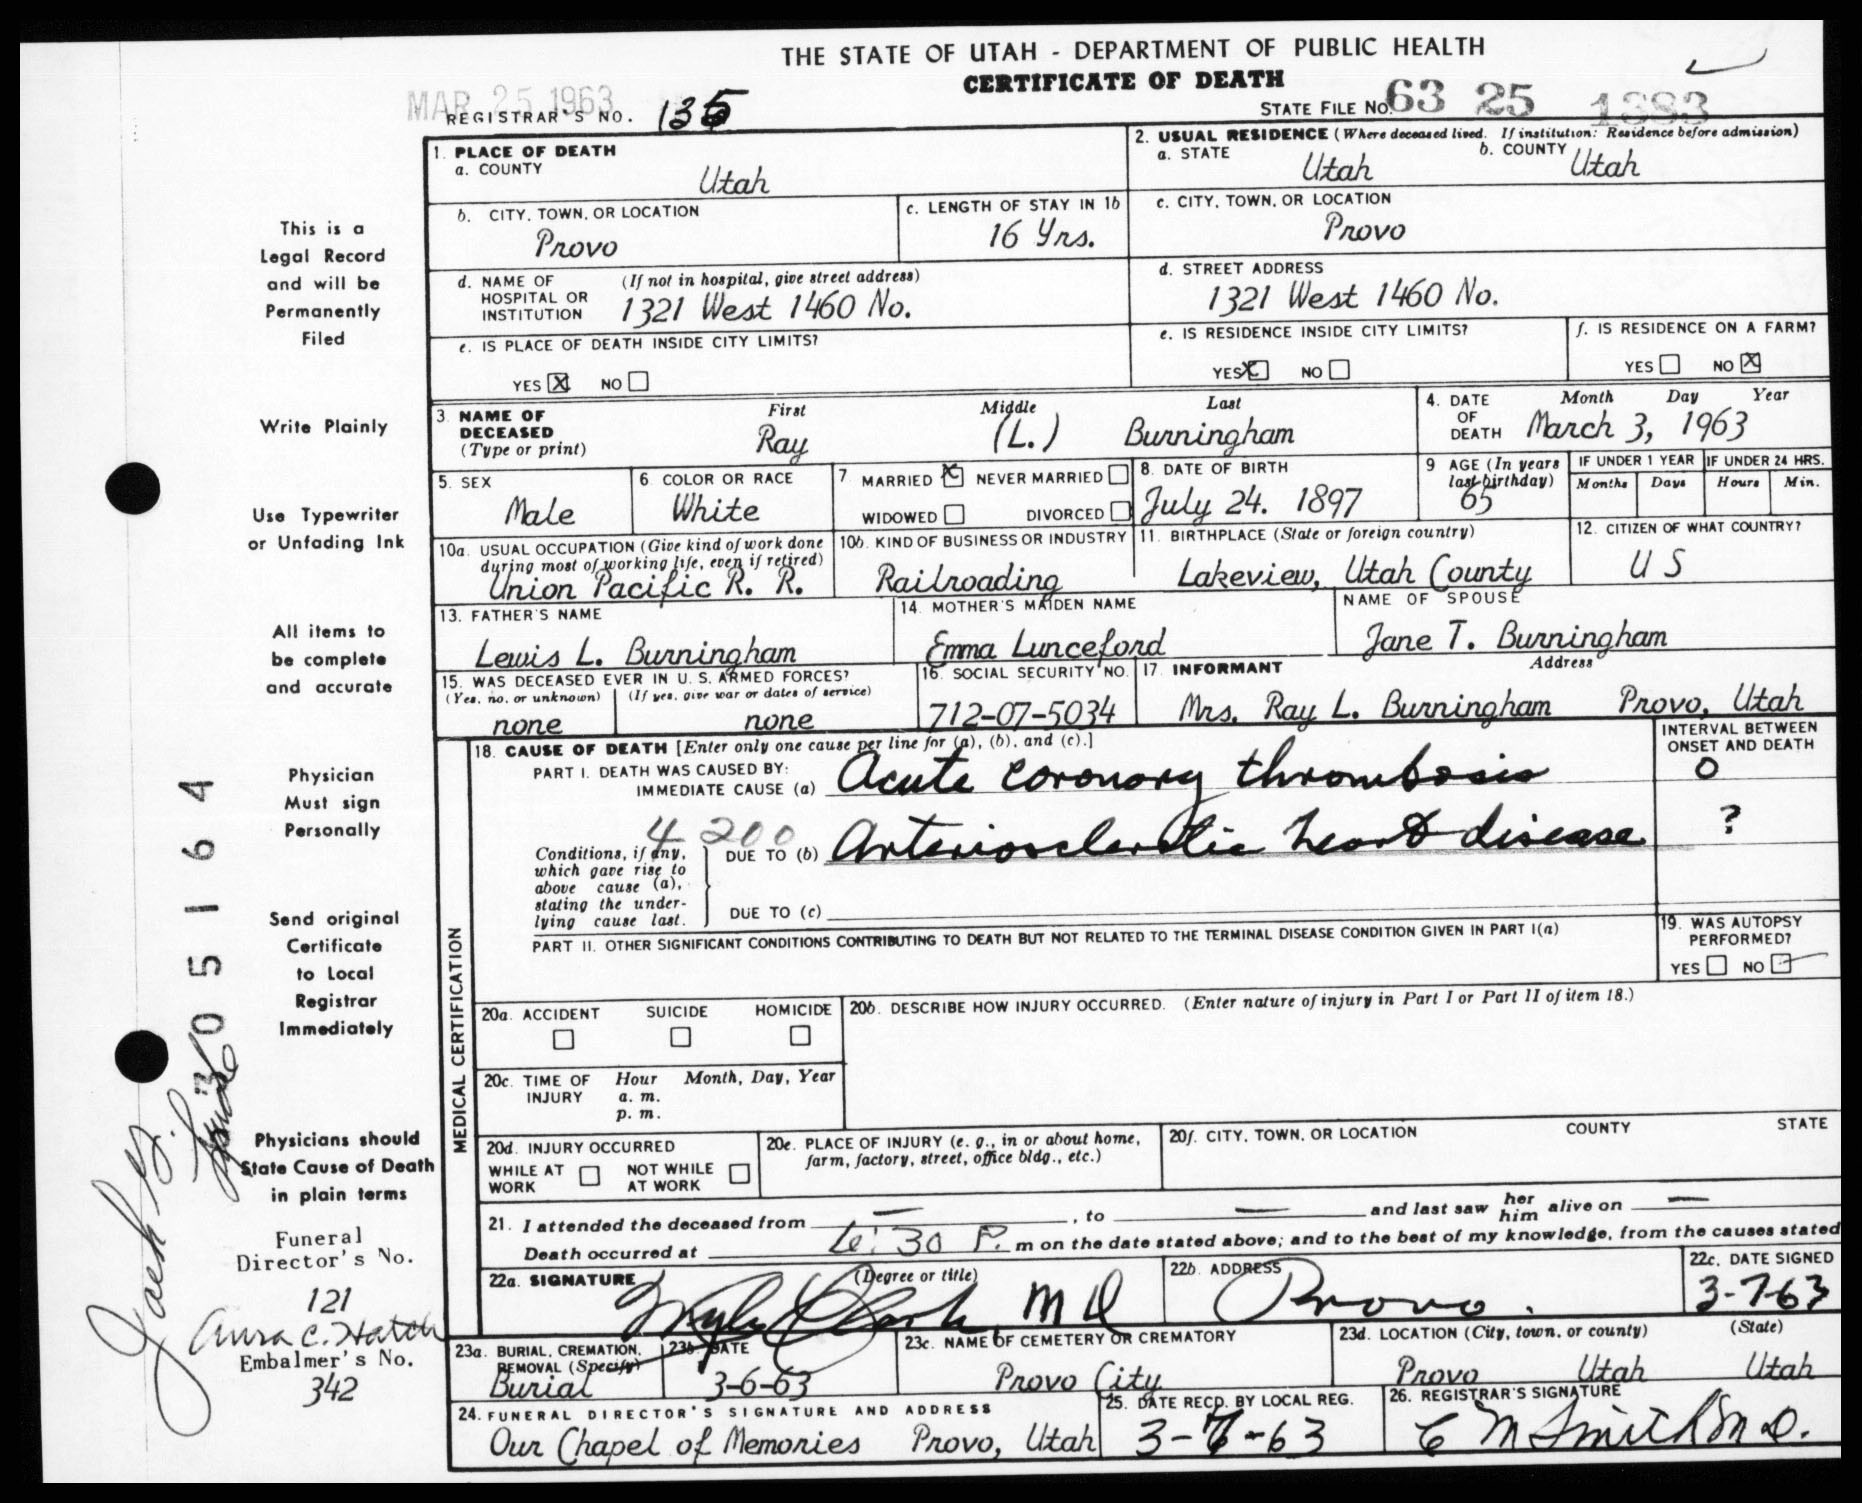 THE STATE OF UTAH - DEPARTMENT OF PUBLIC HEALTH
CERTIFICATE OF DEATH
MAR 25 1963
REGISTRAR'S NO. 135
STATE FILE NO. 63 25 1383
1. PLACE OF DEATH
a. COUNTY
Utah
2. USUAL RESIDENCE (Where deceased lived. If institution: Residence before admission)
a. STATE Utah b. COUNTY Utah
b. CITY, TOWN, OR LOCATION
Provo
c. LENGTH OF STAY IN 1b
16 Yrs.
c. CITY, TOWN, OR LOCATION
Provo
d. NAME OF HOSPITAL OR INSTITUTION (If not in hospital, give street address)
1321 West 1460 No.
d. STREET ADDRESS
1321 West 1460 No.
e. IS PLACE OF DEATH INSIDE CITY LIMITS?
YES X NO
e. IS RESIDENCE INSIDE CITY LIMITS?
YES X NO
f. IS RESIDENCE ON A FARM?
YES NO X
3. NAME OF DECEASED (Type or print)
First Middle Last
Ray (L.) Burningham
4. DATE OF DEATH Month Day Year
March 3, 1963
5. SEX
Male
6. COLOR OR RACE
White
7. MARRIED X NEVER MARRIED
WIDOWED DIVORCED
8. DATE OF BIRTH
July 24. 1897
9 AGE (In years last birthday)
65
IF UNDER 1 YEAR
Months Days
IF UNDER 24 HRS.
Hours Min.
10a. USUAL OCCUPATION (Give kind of work done during most of working life, even if retired)
Union Pacific R. R.
10b. KIND OF BUSINESS OR INDUSTRY
Railroading
11. BIRTHPLACE (State or foreign country)
Lakeview, Utah County
12. CITIZEN OF WHAT COUNTRY?
U S
13. FATHER'S NAME
Lewis L. Burningham
14. MOTHER'S MAIDEN NAME
Emma Lunceford
NAME OF SPOUSE
Jane T. Burningham
15. WAS DECEASED EVER IN U. S. ARMED FORCES?
(Yes, no, or unknown) (If yes, give war or dates of service)
none none
16. SOCIAL SECURITY NO.
712-07-5034
17. INFORMANT Address
Mrs. Ray L. Burningham Provo, Utah
18. CAUSE OF DEATH [Enter only one cause per line for (a), (b), and (c).]
INTERVAL BETWEEN ONSET AND DEATH
PART I. DEATH WAS CAUSED BY:
IMMEDIATE CAUSE (a) Acute coronory thrombosis 0
4 200
Conditions, if any, which gave rise to above cause (a), stating the underlying cause last.
DUE TO (b) Arteriosclerotic heart disease ?
DUE TO (c)
PART II. OTHER SIGNIFICANT CONDITIONS CONTRIBUTING TO DEATH BUT NOT RELATED TO THE TERMINAL DISEASE CONDITION GIVEN IN PART I(a)
19. WAS AUTOPSY PERFORMED?
YES NO
MEDICAL CERTIFICATION
20a. ACCIDENT SUICIDE HOMICIDE
20b. DESCRIBE HOW INJURY OCCURRED. (Enter nature of injury in Part I or Part II of item 18.)
20c. TIME OF INJURY Hour Month, Day, Year
a. m.
p. m.
20d. INJURY OCCURRED
WHILE AT WORK NOT WHILE AT WORK
20e. PLACE OF INJURY (e. g., in or about home, farm, factory, street, office bldg., etc.)
20f. CITY, TOWN, OR LOCATION COUNTY STATE
21. I attended the deceased from — , to — and last saw her him alive on —
Death occurred at 6:30 P. m on the date stated above; and to the best of my knowledge, from the causes stated
22a. SIGNATURE (Degree or title)
Clark, MD
22b. ADDRESS
Provo.
22c. DATE SIGNED
3-7-63
23a. BURIAL, CREMATION, REMOVAL (Specify)
Burial
23b. DATE
3-6-63
23c. NAME OF CEMETERY OR CREMATORY
Provo City
23d. LOCATION (City, town, or county) (State)
Provo Utah Utah
24. FUNERAL DIRECTOR'S SIGNATURE AND ADDRESS
Our Chapel of Memories Provo, Utah
25. DATE RECD. BY LOCAL REG.
3-7-63
26. REGISTRAR'S SIGNATURE
C M Smith M D.
This is a
Legal Record
and will be
Permanently
Filed
Write Plainly
Use Typewriter
or Unfading Ink
All items to
be complete
and accurate
Physician
Must sign
Personally
Send original
Certificate
to Local
Registrar
Immediately
Physicians should
State Cause of Death
in plain terms
Funeral
Director's No.
121
Anna C. Hatch
Embalmer's No.
342
05164
Jack